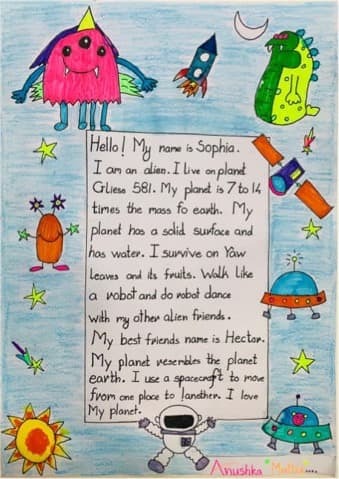 Hello! My name is Sophia.
I am an alien. I live on planet
Gliese 581. My planet is 7 to 14
times the mass fo earth. My
planet has a solid surface and
has water. I survive on Yaw
leaves and its fruits. Walk like
a robot and do robot dance
with my other alien friends.
My best friends name is Hector.
My planet resembles the planet
earth. I use a spacecraft to move
from one place to another. I love
My planet.
Anushka